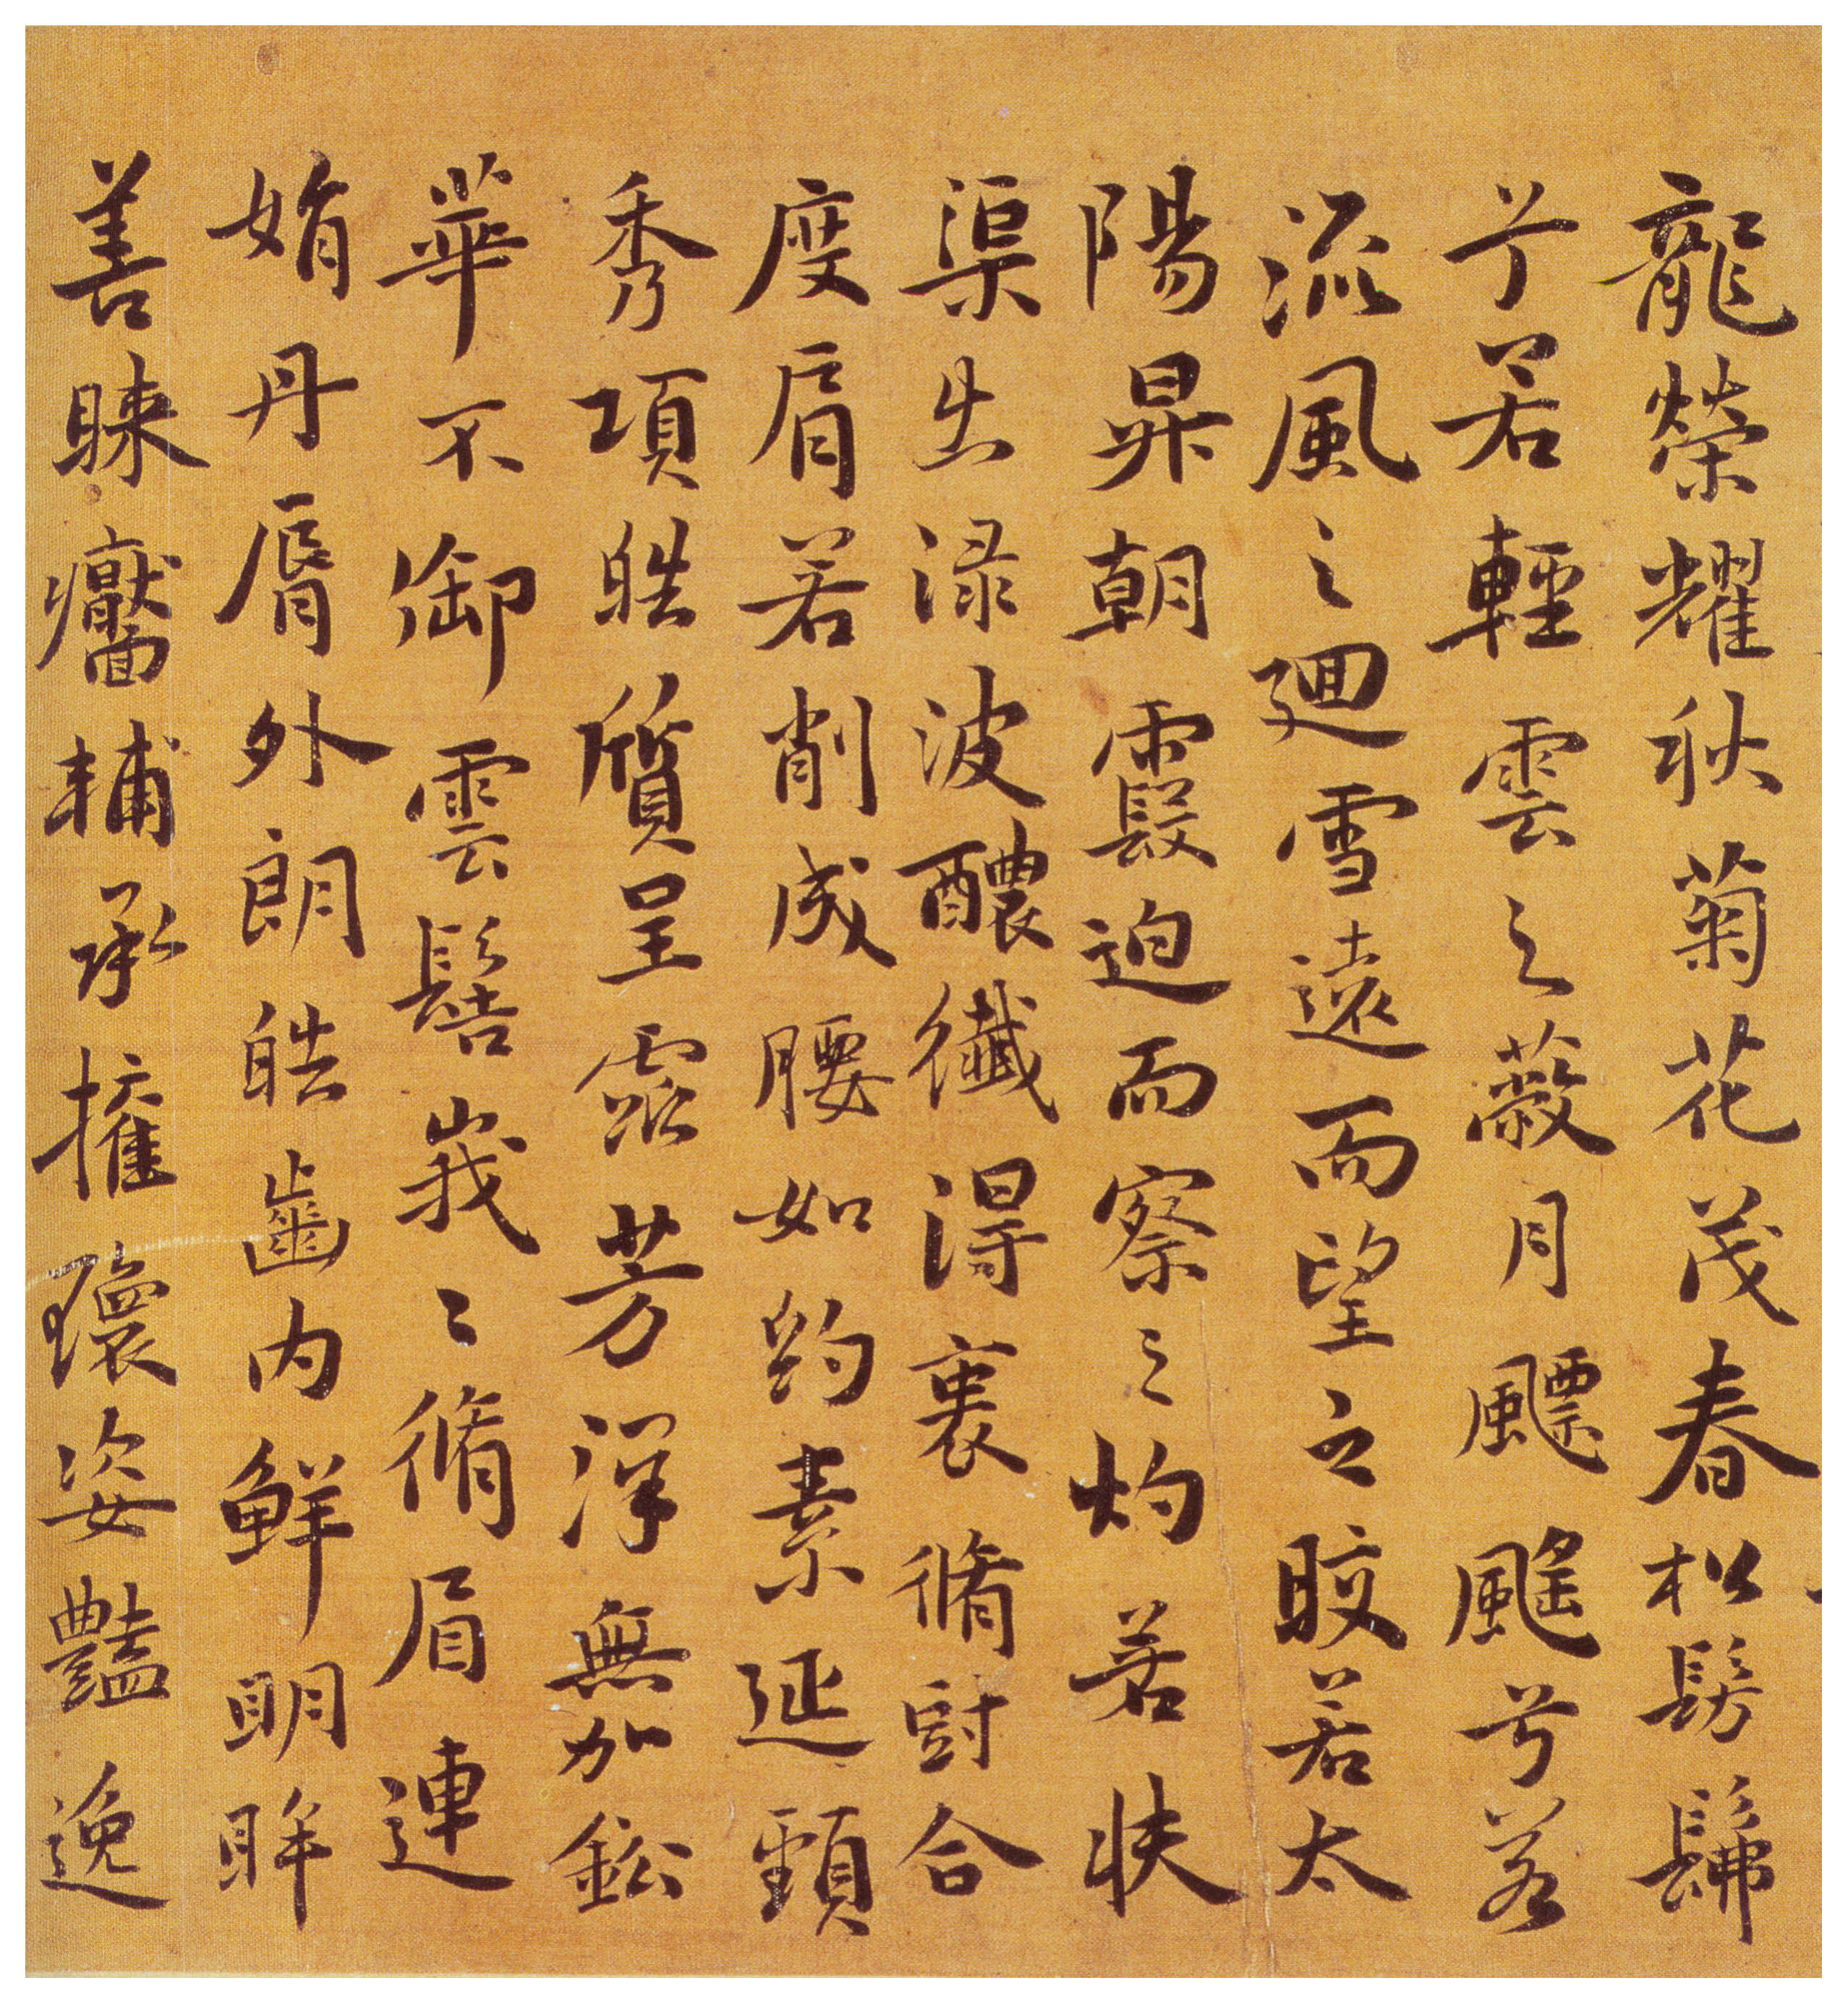 龍榮耀秋菊花茂春松髣髴
兮若輕雲之蔽月飃颻兮若
流風之迴雪遠而望之晈若太
陽昇朝霞迫而察之灼若
渠出渌波醲纖得裏脩尌合
度肩若削成腰如約素延頸
秀項皓質呈露芳澤無加鈆
華不御雲髻峩〻脩眉連
娟丹脣外朗皓齒内鮮明眸
善睞輔承擁瓌姿豔逸